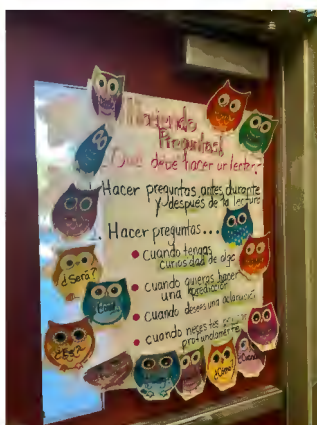 Haciendo
Preguntas!
¿Qué debe hacer un lector?
Hacer preguntas antes, durante
y después de la lectura
Hacer preguntas...
cuando tengas
curiosidad de algo
cuando quieras hacer
una predicción
cuando desees una aclaración
cuando necesites
profundamente
¿Será?
¿Es?
¿Cómo?